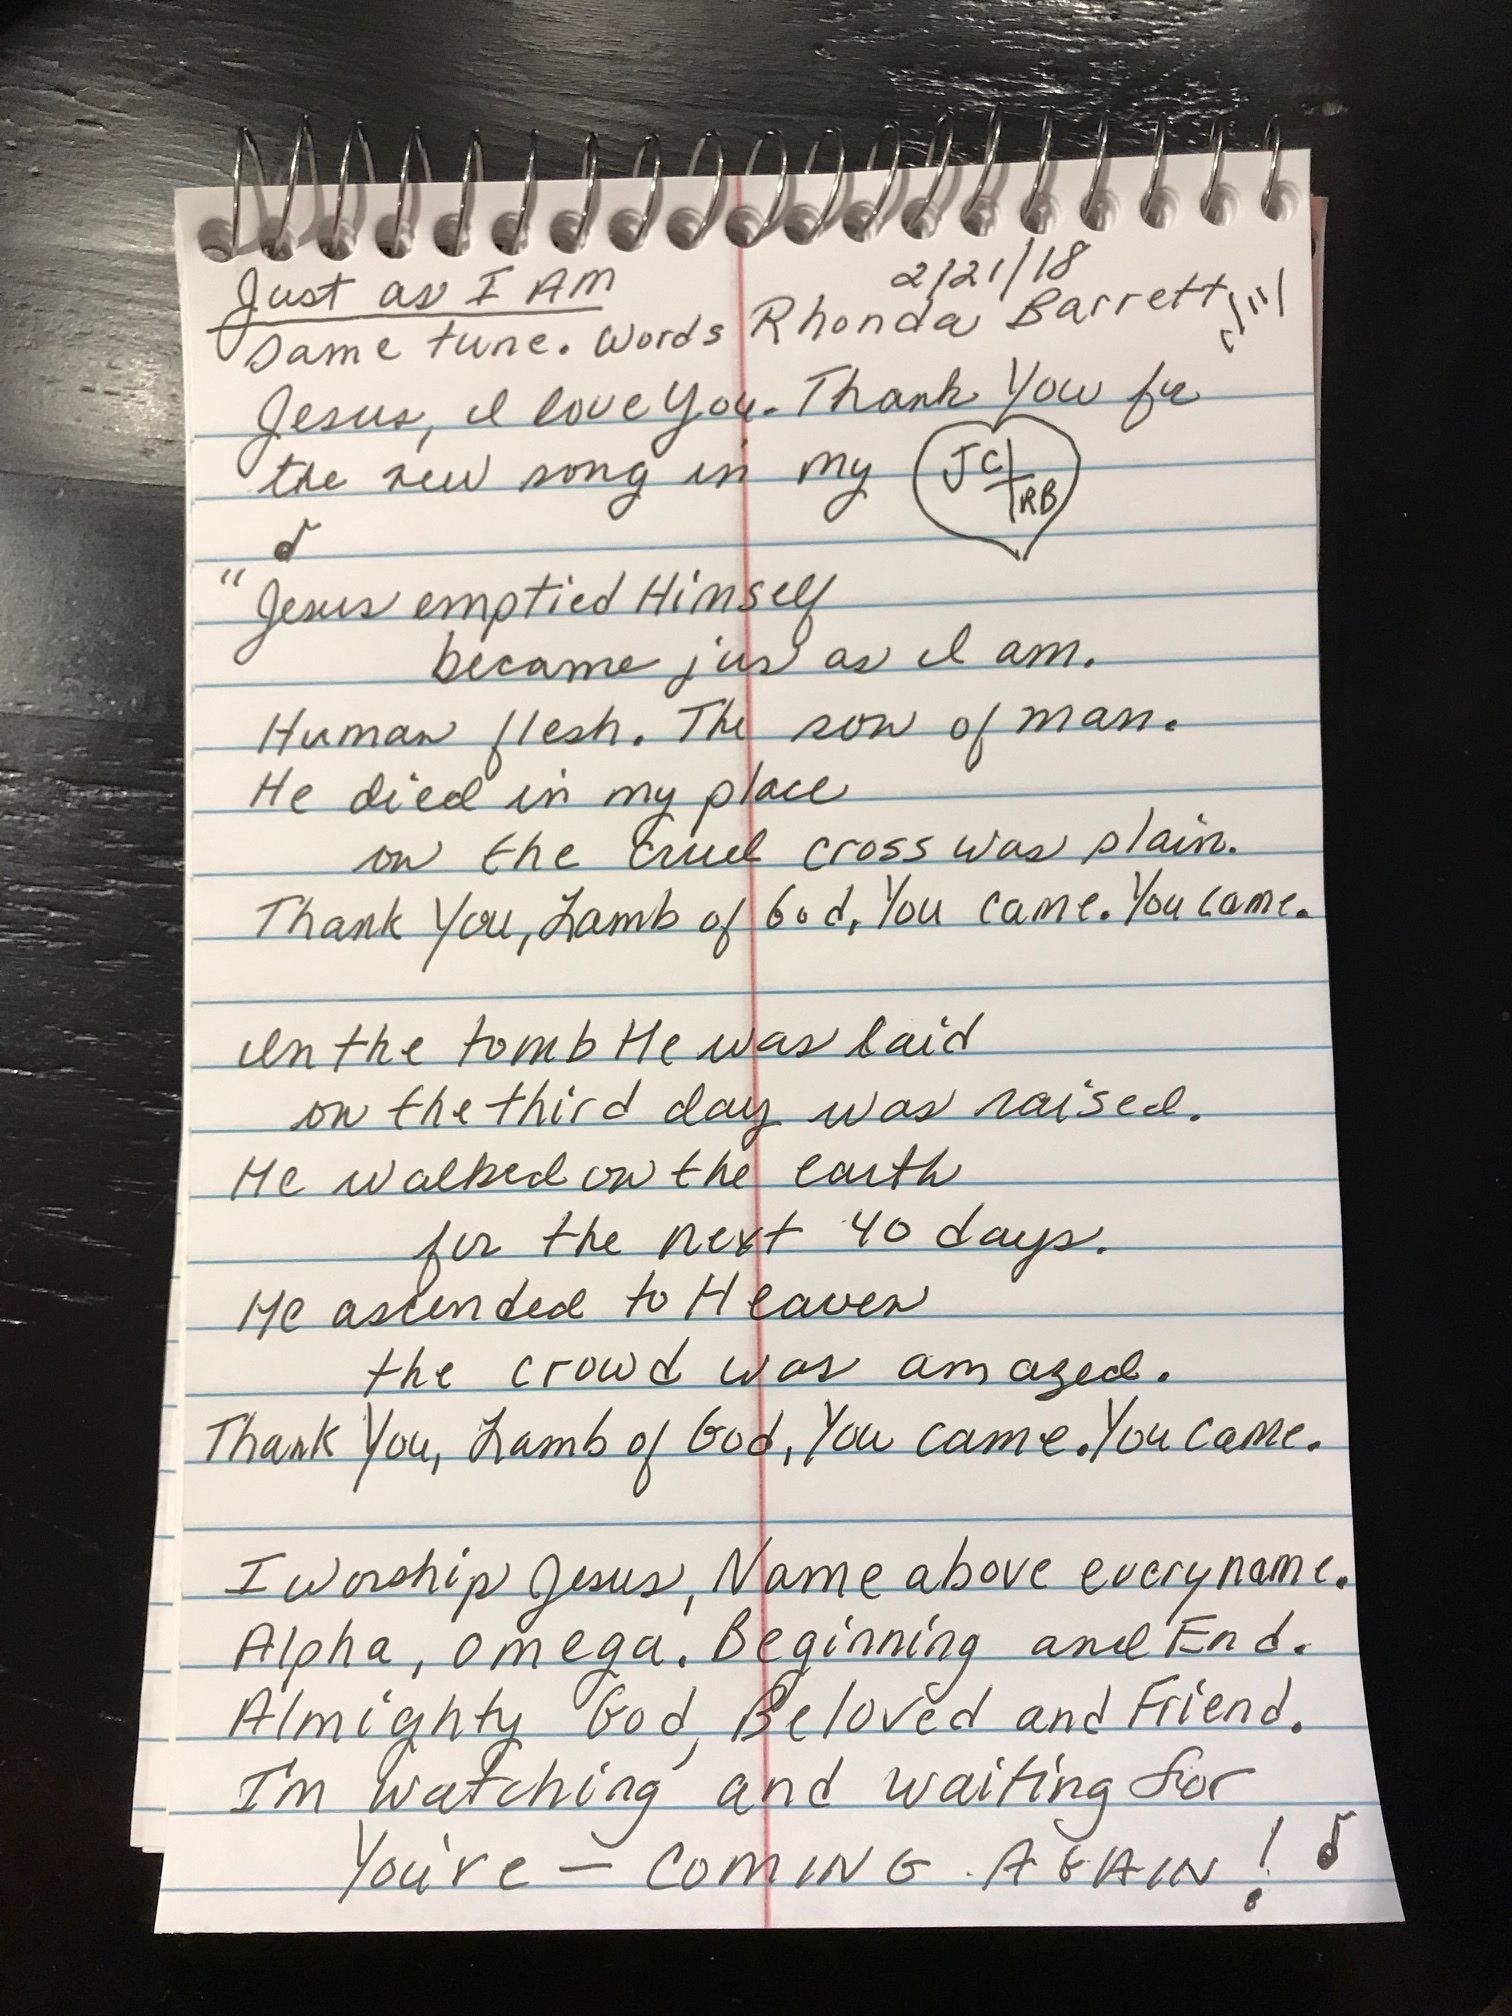 Just as I AM
2/21/18
same tune. Words Rhonda Barrett
Jesus, I love You. Thank You for
the new song in my JC + RB
"Jesus emptied Himself
became jus as I am.
Human flesh. The son of man.
He died in my place
on the cruel cross was plain.
Thank You, Lamb of God, You came. You came.
In the tomb He was laid
on the third day was raised.
He walked on the earth
for the next 40 days.
He ascended to Heaven
the crowd was amazed.
Thank You, Lamb of God, You came. You came.
I worship Jesus, Name above every name.
Alpha, omega. Beginning and End.
Almighty God, Beloved and Friend.
I'm watching and waiting for
You're — COMING AGAIN!